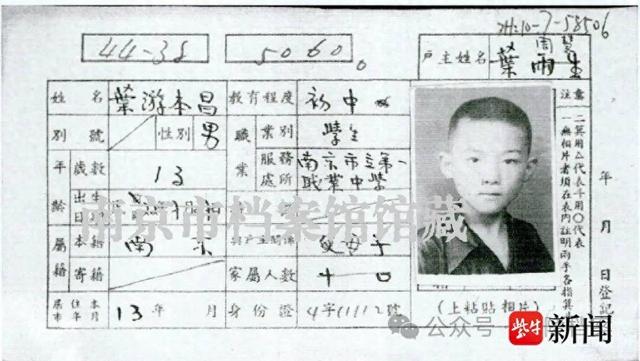 44-38 5060
戶主姓名 葉雨生
姓名 葉游本昌 教育程度 初中
別號 性別 男 職業 業別 學生
年齡 歲數 13 服務處所 南京市立第一職業中學
出生
屬籍 本籍 南京
寄籍 家屬人數 十口
13年 月 身份證 4字11112號
(上粘貼相片)
注意
二 算用△代表千用〇代表
一 無相片者須在表內註明兩手各指箕斗
年 月 日登記
南京市档案馆馆藏
公众号
紫牛新闻